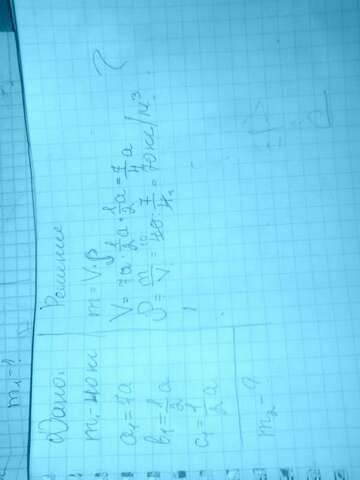 m₁-?
Дано:
m₁-40 кг
a₁=7a
b₁=1/2 a
c₁=1/2 a
m₂-?
Решение
m=V·ρ
V=7a·1/2 a·1/2 a=7/4 a
ρ=m/V=40·7/4=70 кг/м³